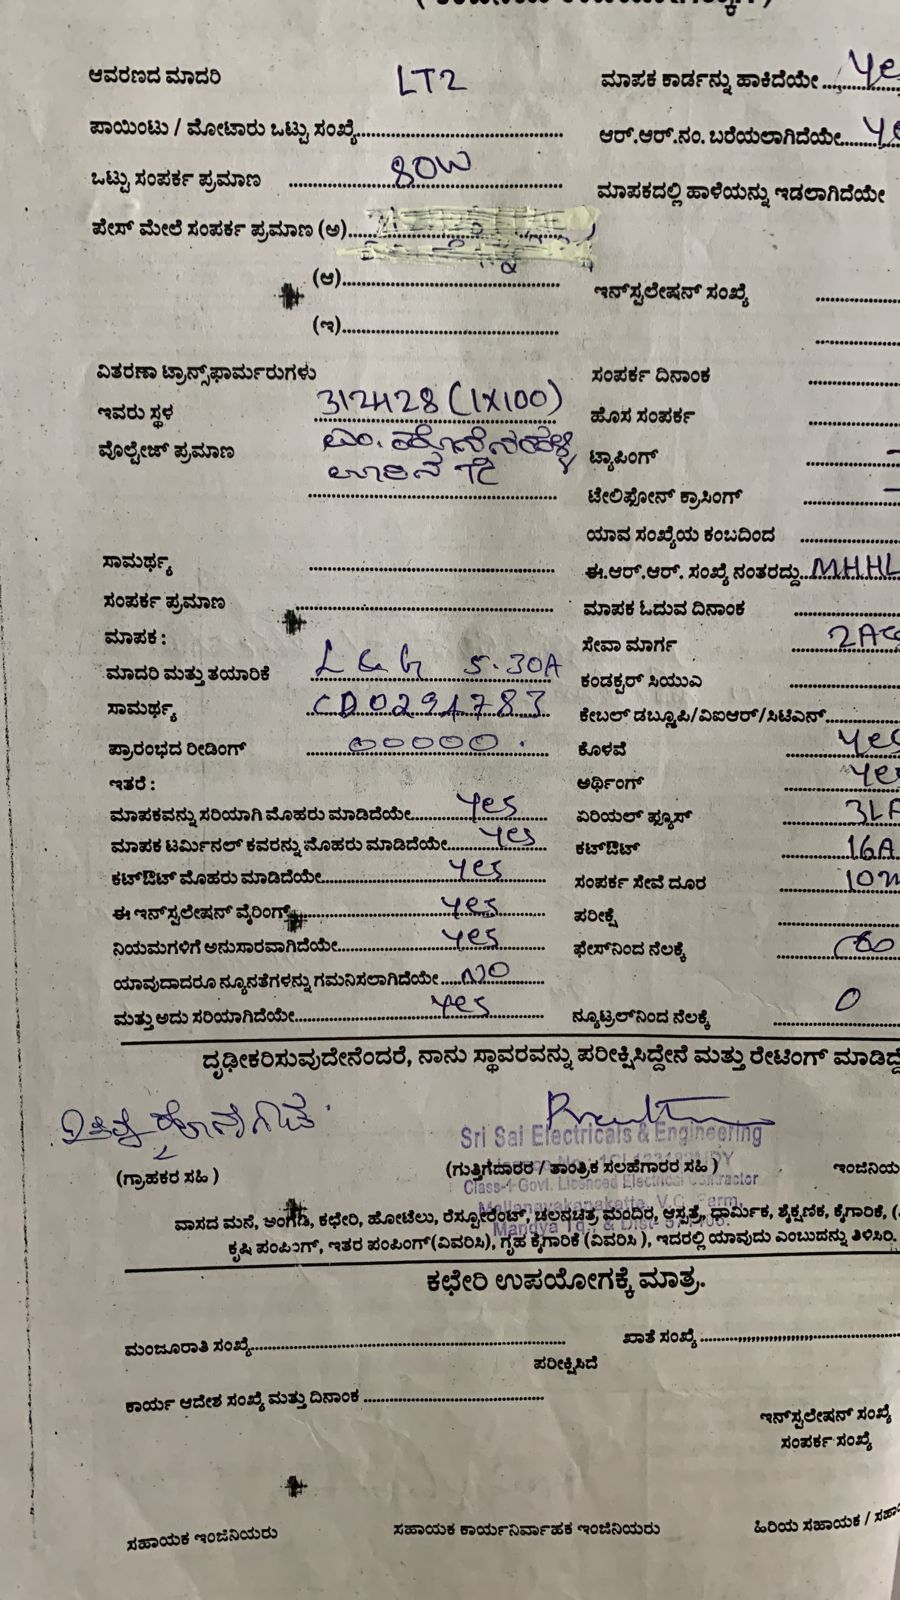 ಆವರಣದ ಮಾದರಿ LT2 ಮಾಪಕ ಕಾರ್ಡನ್ನು ಹಾಕಿದೆಯೇ
ಪಾಯಿಂಟು / ಮೋಟಾರು ಒಟ್ಟು ಸಂಖ್ಯೆ ಆರ್.ಆರ್.ನಂ. ಬರೆಯಲಾಗಿದೆಯೇ
ಒಟ್ಟು ಸಂಪರ್ಕ ಪ್ರಮಾಣ 80W ಮಾಪಕದಲ್ಲಿ ಹಾಳೆಯನ್ನು ಇಡಲಾಗಿದೆಯೇ
ಪೇಸ್ ಮೇಲೆ ಸಂಪರ್ಕ ಪ್ರಮಾಣ (ಅ)
(ಆ) ಇನ್‌ಸ್ಟಲೇಷನ್ ಸಂಖ್ಯೆ
(ಇ)
ವಿತರಣಾ ಟ್ರಾನ್ಸ್‌ಫಾರ್ಮರುಗಳು ಸಂಪರ್ಕ ದಿನಾಂಕ
ಇವರು ಸ್ಥಳ 312428 (1X100) ಹೊಸ ಸಂಪರ್ಕ
ವೊಲ್ಟೇಜ್ ಪ್ರಮಾಣ ಟ್ಯಾಪಿಂಗ್
ಟೇಲಿಫೋನ್ ಕ್ರಾಸಿಂಗ್
ಯಾವ ಸಂಖ್ಯೆಯ ಕಂಬದಿಂದ
ಸಾಮರ್ಥ್ಯ ಈ.ಆರ್.ಆರ್. ಸಂಖ್ಯೆ ನಂತರದ್ದು MHHL
ಸಂಪರ್ಕ ಪ್ರಮಾಣ ಮಾಪಕ ಓದುವ ದಿನಾಂಕ
ಮಾಪಕ : ಸೇವಾ ಮಾರ್ಗ
ಮಾದರಿ ಮತ್ತು ತಯಾರಿಕೆ L & G 5-30A ಕಂಡಕ್ಟರ್ ಸಿಯುಎ
ಸಾಮರ್ಥ್ಯ ಕೇಬಲ್ ಡಬ್ಲೂಪಿ/ವಿಐಆರ್/ಸಿಟಿಎನ್
ಪ್ರಾರಂಭದ ರೀಡಿಂಗ್ 00000. ಕೊಳವೆ yes
ಇತರೆ : ಅರ್ಥಿಂಗ್ yes
ಮಾಪಕವನ್ನು ಸರಿಯಾಗಿ ಮೊಹರು ಮಾಡಿದೆಯೇ yes ಏರಿಯಲ್ ಫ್ಯೂಸ್
ಮಾಪಕ ಟರ್ಮಿನಲ್ ಕವರನ್ನು ಮೊಹರು ಮಾಡಿದೆಯೇ yes ಕಟ್‌ಔಟ್ 16A
ಕಟ್‌ಔಟ್ ಮೊಹರು ಮಾಡಿದೆಯೇ yes ಸಂಪರ್ಕ ಸೇವೆ ದೂರ
ಈ ಇನ್‌ಸ್ಟಲೇಷನ್ ವೈರಿಂಗ್ yes ಪರೀಕ್ಷೆ
ನಿಯಮಗಳಿಗೆ ಅನುಸಾರವಾಗಿದೆಯೇ yes ಫೇಸ್‌ನಿಂದ ನೆಲಕ್ಕೆ
ಯಾವುದಾದರೂ ನ್ಯೂನತೆಗಳನ್ನು ಗಮನಿಸಲಾಗಿದೆಯೇ NO
ಮತ್ತು ಅದು ಸರಿಯಾಗಿದೆಯೇ yes ನ್ಯೂಟ್ರಲ್‌ನಿಂದ ನೆಲಕ್ಕೆ 0
ದೃಢೀಕರಿಸುವುದೇನೆಂದರೆ, ನಾನು ಸ್ಥಾವರವನ್ನು ಪರೀಕ್ಷಿಸಿದ್ದೇನೆ ಮತ್ತು ರೇಟಿಂಗ್
Sri Sai Electricals & Engineering
(ಗ್ರಾಹಕರ ಸಹಿ ) (ಗುತ್ತಿಗೆದಾರರ / ತಾಂತ್ರಿಕ ಸಲಹೆಗಾರರ ಸಹಿ )
Class-1 Govt. Licenced Electrical Contractor
ವಾಸದ ಮನೆ, ಅಂಗಡಿ, ಕಛೇರಿ, ಹೋಟೆಲು, ರೆಸ್ಟೋರೆಂಟ್, ಚಲನಚಿತ್ರ ಮಂದಿರ, ಆಸ್ಪತ್ರೆ, ಧಾರ್ಮಿಕ, ಶೈಕ್ಷಣಿಕ, ಕೈಗಾರಿಕೆ,
ಕೃಷಿ ಪಂಪಿಂಗ್, ಇತರ ಪಂಪಿಂಗ್(ವಿವರಿಸಿ), ಗೃಹ ಕೈಗಾರಿಕೆ (ವಿವರಿಸಿ ), ಇದರಲ್ಲಿ ಯಾವುದು ಎಂಬುದನ್ನು ತಿಳಿಸಿರಿ.
ಕಛೇರಿ ಉಪಯೋಗಕ್ಕೆ ಮಾತ್ರ.
ಮಂಜೂರಾತಿ ಸಂಖ್ಯೆ ಖಾತೆ ಸಂಖ್ಯೆ
ಪರೀಕ್ಷಿಸಿದೆ
ಕಾರ್ಯ ಆದೇಶ ಸಂಖ್ಯೆ ಮತ್ತು ದಿನಾಂಕ
ಇನ್‌ಸ್ಟಲೇಷನ್ ಸಂಖ್ಯೆ
ಸಂಪರ್ಕ ಸಂಖ್ಯೆ
ಸಹಾಯಕ ಇಂಜಿನಿಯರು ಸಹಾಯಕ ಕಾರ್ಯನಿರ್ವಾಹಕ ಇಂಜಿನಿಯರು ಹಿರಿಯ ಸಹಾಯಕ /